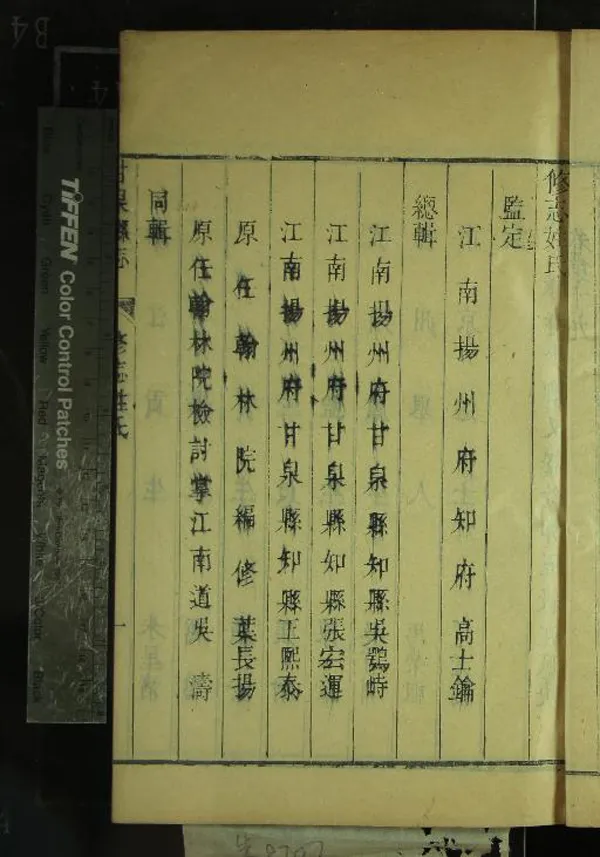 修志姓氏
監定
江南揚州府知府高士鑰
總輯
江南揚州府甘泉縣知縣吳鶚峙
江南揚州府甘泉縣知縣張宏運
江南揚州府甘泉縣知縣王熙泰
原任翰林院編修葉長揚
原任翰林院檢討掌江南道吳濤
同輯
甘泉縣志 修志姓氏 一
TIFFEN Color Control Patches
Blue
Cyan
Green
Yellow
Red
Magenta
White
3/Color
Black
B4